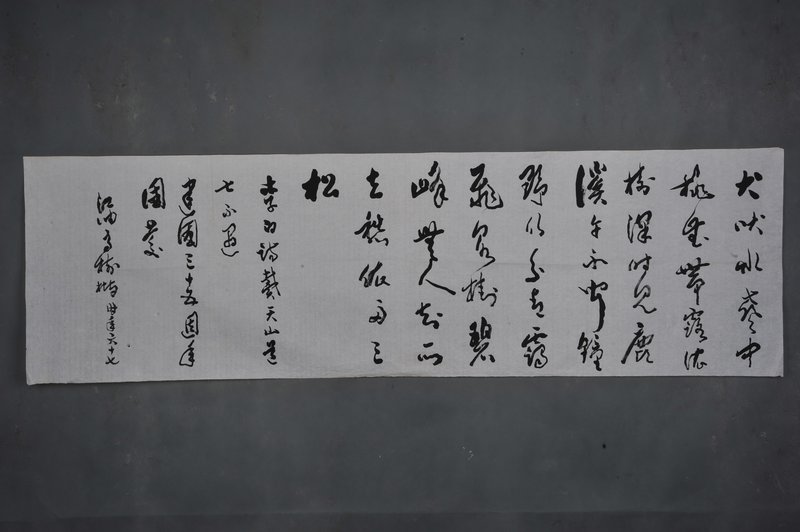 犬吠水聲中
桃花帶露濃
樹深時見鹿
溪午不聞鐘
野竹分青靄
飛泉掛碧
峰無人知所
去愁依兩三
松
李白訪戴天山道
士不遇
建國三十五周年
國慶
江油 時年六十七